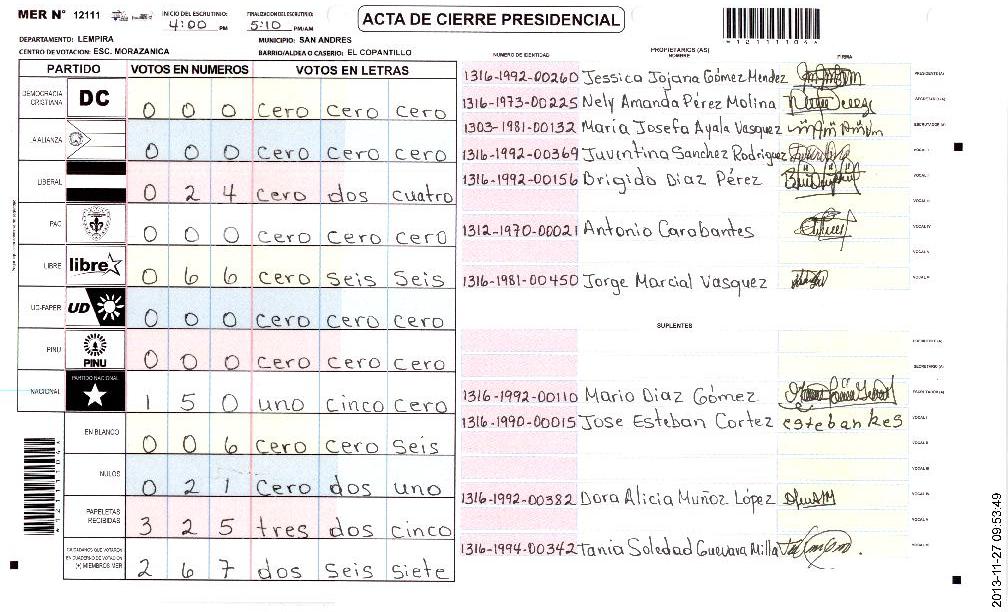 MER N° 12111
INICIO DE ESCRUTINIO: 4:00 PM
FINALIZACION DEL ESCRUTINIO: 5:10 PM/AM
ACTA DE CIERRE PRESIDENCIAL
*12111104*
DEPARTAMENTO: LEMPIRA
MUNICIPIO: SAN ANDRES
CENTRO DE VOTACION: ESC. MORAZANICA
BARRIO/ALDEA O CASERIO: EL COPANTILLO
PARTIDO VOTOS EN NUMEROS VOTOS EN LETRAS
DEMOCRACIA CRISTIANA DC 0 0 0 Cero Cero Cero
LA ALIANZA 0 0 0 Cero Cero Cero
LIBERAL 0 2 4 Cero dos cuatro
PAC 0 0 0 Cero Cero Cero
LIBRE libre 0 6 6 Cero Seis Seis
UD-FAPER UD 0 0 0 Cero Cero Cero
PINU PINU 0 0 0 Cero Cero Cero
NACIONAL PARTIDO NACIONAL 1 5 0 uno cinco Cero
EN BLANCO 0 0 6 Cero Cero Seis
NULOS 0 2 1 Cero dos uno
PAPELETAS RECIBIDAS 3 2 5 tres dos cinco
CIUDADANOS QUE VOTARON EN CUADERNO DE VOTACION (+) MIEMBROS MER 2 6 7 dos seis siete
PROPIETARIOS (AS)
NUMERO DE IDENTIDAD NOMBRE FIRMA
1316-1992-00260 Jessica Jojana Gómez Mendez PRESIDENTE (A)
1316-1973-00225 Nely Amanda Pérez Molina SECRETARIO (A)
1303-1981-00132 María Josefa Ayala Vasquez ESCRUTADOR (A)
1316-1992-00369 Juventina Sanchez Rodriguez VOCAL I
1316-1992-00156 Brigido Diaz Pérez
VOCAL III
1312-1970-00021 Antonio Carabantes VOCAL IV
VOCAL V
1316-1981-00450 Jorge Marcial Vasquez
SUPLENTES
PRESIDENTE (A)
SECRETARIO (A)
1316-1992-00110 Mario Diaz Gómez ESCRUTADOR (A)
1316-1990-00015 Jose Esteban Cortez esteban kes VOCAL I
VOCAL II
VOCAL III
1316-1992-00382 Dora Alicia Muñoz López VOCAL IV
VOCAL V
1316-1994-00342 Tania Soledad Guevara Milla
2013-11-27 09:53:49